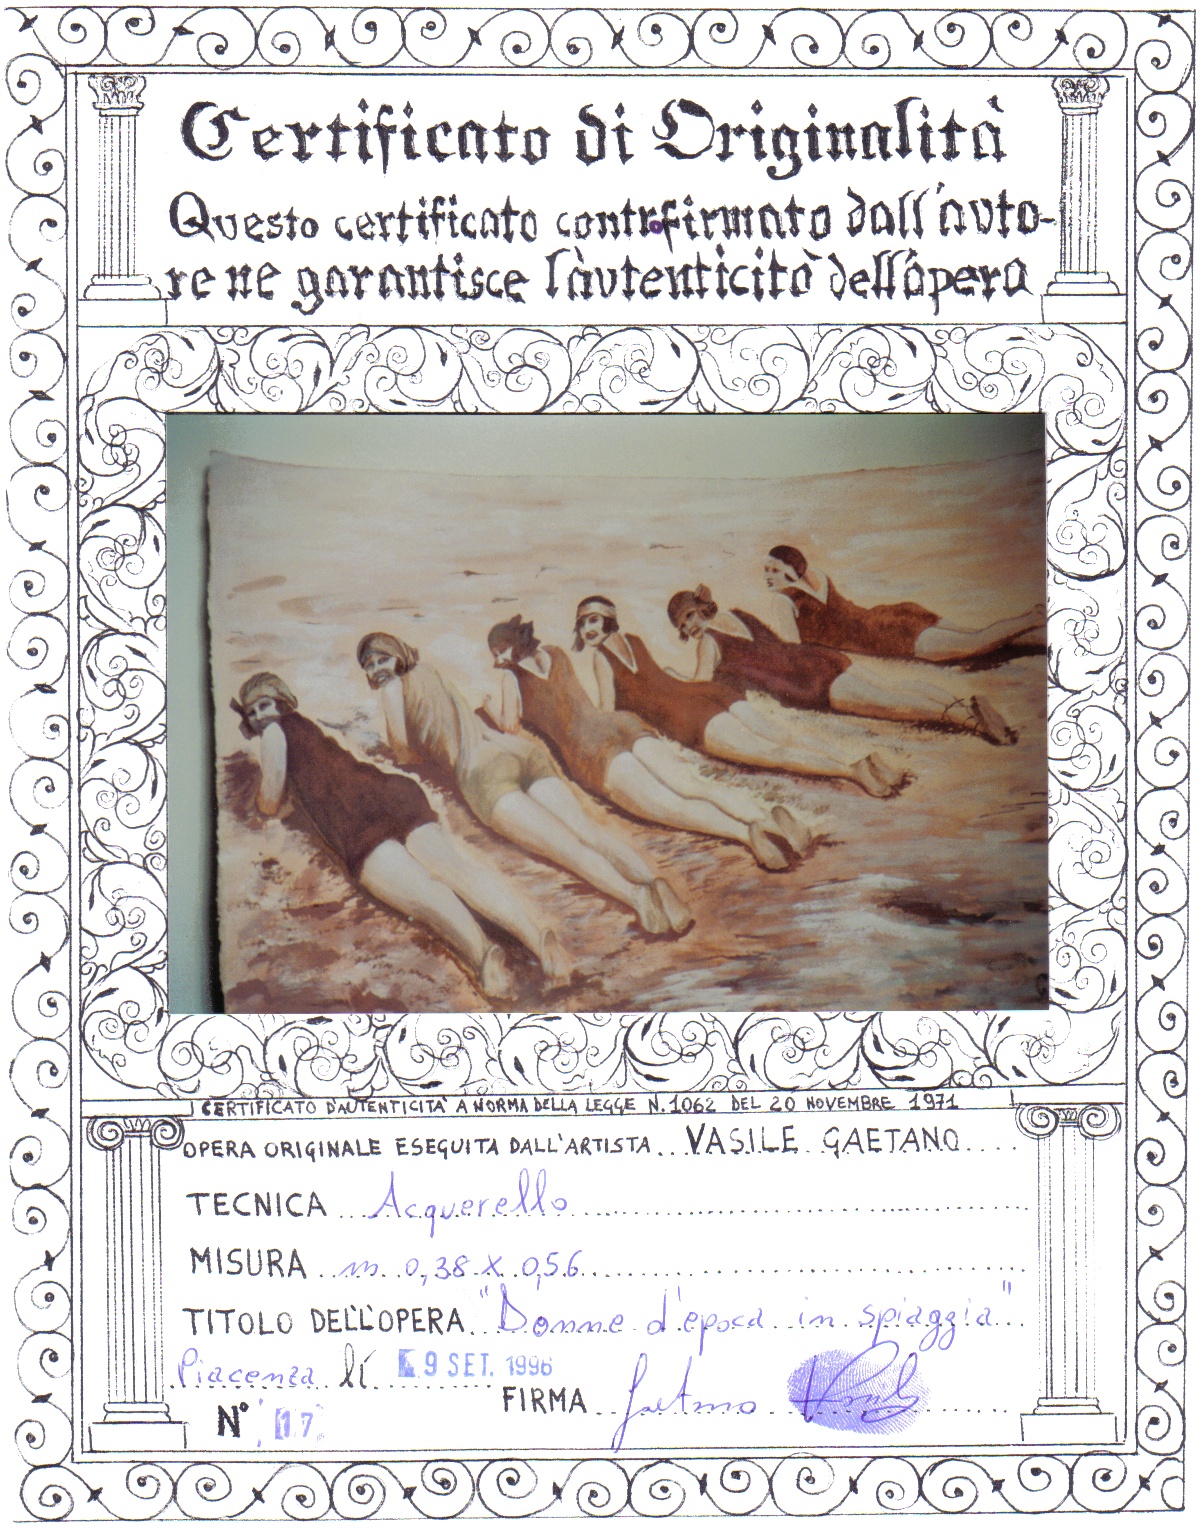 Certificato di Originalità
Questo certificato controfirmato dall'auto-
re ne garantisce l'àutenticità dell'òpera
CERTIFICATO D'AUTENTICITA' A NORMA DELLA LEGGE N.1062 DEL 20 NOVEMBRE 1971
OPERA ORIGINALE ESEGUITA DALL'ARTISTA...VASILE GAETANO....
TECNICA ...Acquerello.......
MISURA ...m 0,38 X 0,56.......
TITOLO DELL'OPERA..."Donne d'epoca in spiaggia"...
Piacenza lí 9 SET. 1996
FIRMA ...Gaetano
N° 17